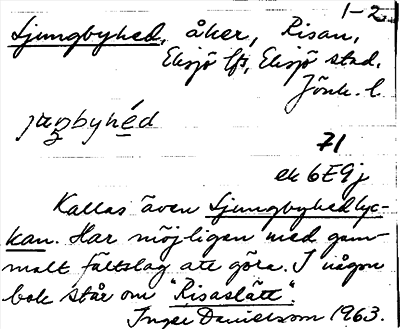 1-2.
Ljungbyhed, åker, Risan,
Eksjö lfs, Eksjö stad,
Jönk. l.
71
ek 6E9j
Kallas även Ljungbyhedlyc-
kan. Har möjligen med gam-
malt fältslag att göra. I någon
bok står om "Risaslätt".
Inger Danielsson 1963.